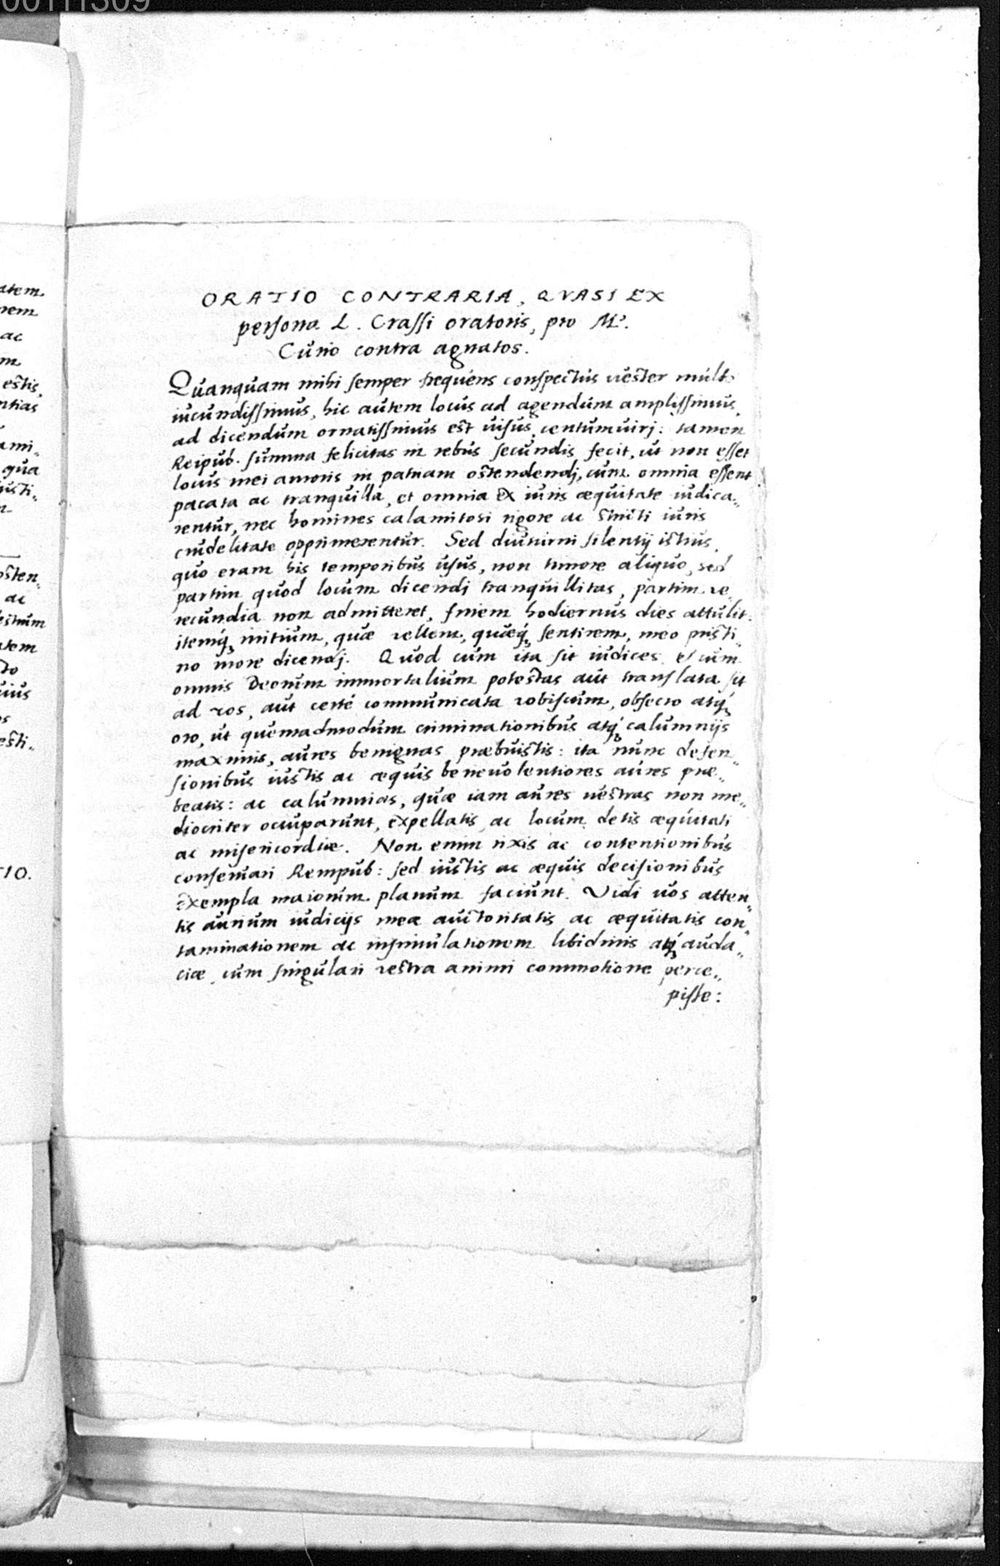 00111309
ORATIO CONTRARIA, QVASI EX
persona L. Crassi oratoris, pro M.
Curio contra agnatos.
Quanquam mihi semper frequens conspectus uester mult.
iucundissimus, hic autem locus ad agendum amplissimus,
ad dicendum ornatissimus est uisus, centumuirj: tamen
Reipub. summa felicitas in rebus secundis fecit, ut non esset
locus mei amoris in patriam ostendendj, cum omnia essent
pacata ac tranquilla, et omnia ex iuris æquitate iudica„
rentur, nec homines calamitosi rigore ac stricti iuris
crudelitate opprimerentur. Sed diuturni silentij istius,
quo eram his temporibus usus, non timore aliquo, sed
partim quod locum dicendj tranquillitas, partim ve„
recundia non admitteret, finem hodiernus dies attulit:
itemq́ initium, quæ vellem, quæq́ sentirem, meo pristi„
no more dicendj. Quod cum ita sit iudices, et cum
omnis Deorum immortalium potestas aut translata sit
ad vos, aut certè communicata vobiscum, obsecro atq́
oro, ut quemadmodum criminationibus atq́ calumnijs
maximis, aures benignas præbuistis: ita nunc defen„
sionibus iustis ac æquis beneuolentiores aures præ„
beatis: ac calumnias, quæ iam aures uestras non me„
diocriter occuparunt, expellatis, ac locum detis æquitati
ac misericordiæ. Non enim rixis ac contentionibus
conseruari Rempub: sed iustis ac æquis decisionibus
exempla maiorum planum faciunt. Vidi uos atten„
tis aurium iudicijs meæ auctoritatis ac æquitatis con„
taminationem ac insimulationem libidinis atq́ auda„
ciæ, cum singulari vestra animi commotione perce„
pisse: